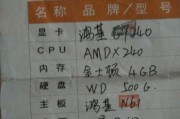 名称 品牌/型号
显卡 鸿基 240
CPU AMD X240
内存 金士顿 4GB
硬盘 WD 500G.
主板 鸿基 N61